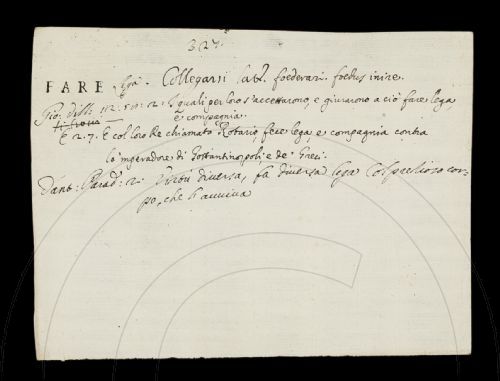 327.
FARE lega. Collegarsi lat. foederari. foedus inire.
Gio: Vill: 12. 2. I quali per loro s'accettarono, e giurarono a ciò fare lega,
e compagnia.
E 2. 7. E col loro Re chiamato Rotario, fece lega e compagnia contra
lo 'mperadore di Gostantinopoli, e de' Greci.
Dant: Parad: 2. Virtù diversa, fa diversa lega Col prezioso cor-
po, che l'avviva